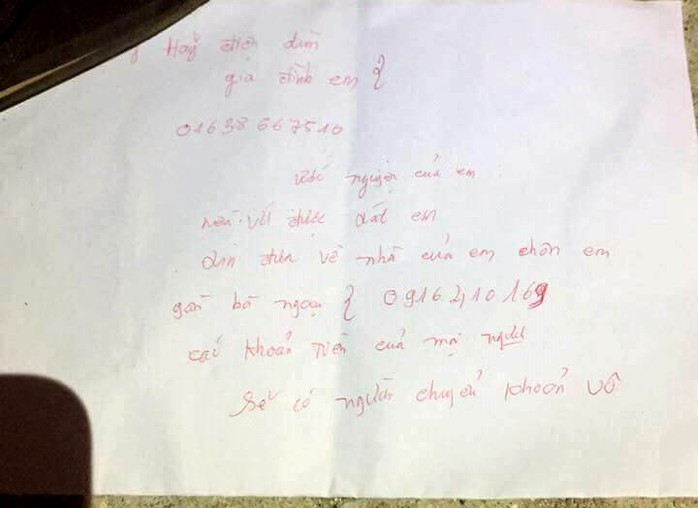 Hãy địch dùm
gia đình em {
01638667510
nguyện của em
vớt được xác em
đưa về nhà của em chôn em
gần bà ngoại { 0916410169
các khoản tiền của mọi người
Sẽ có người chuyển khoản vô